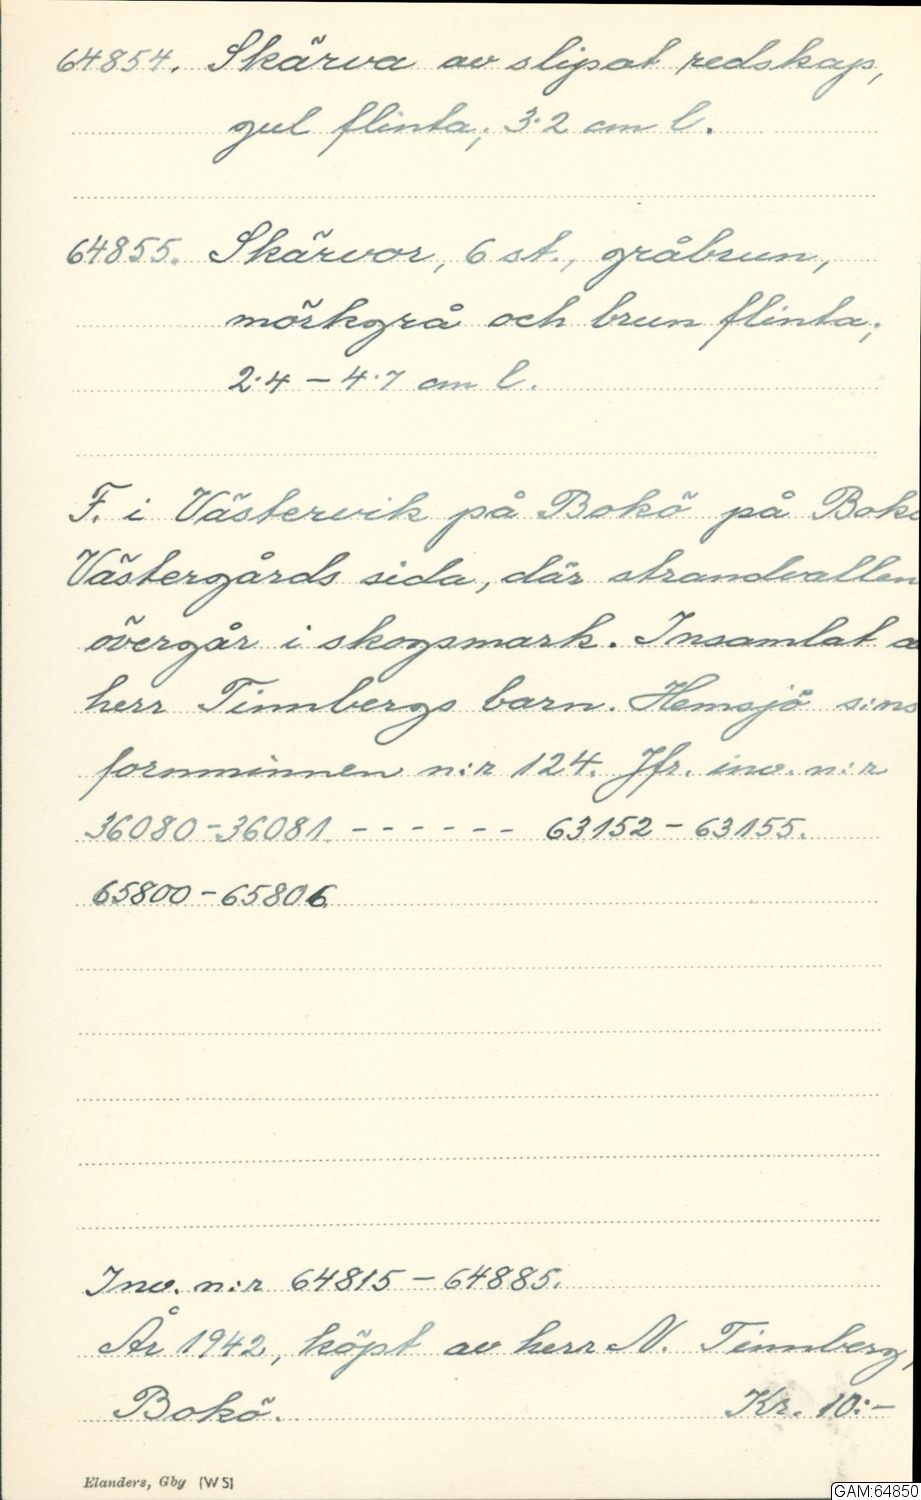 64854. Skärva av slipat redskap,
gul flinta; 3·2 cm l.
64855. Skärvor, 6 st., gråbrun,
mörkgrå och brun flinta;
2·4 – 4·7 cm l.
F. i Västervik på Bokö på Bokö
Västergårds sida, där strandvallen
övergår i skogsmark. Insamlat a
herr Tinnbergs barn. Hemsjö s:ns
fornminnen n:r 124. Jfr. inv. n:r
36080-36081 ------ 63152-63155.
65800-65806
Inv. n:r 64815-64885.
År 1942, köpt av herr N. Tinnberg,
Bokö. Kr. 10:-
Elanders, Gby (W 5)
GAM:64850